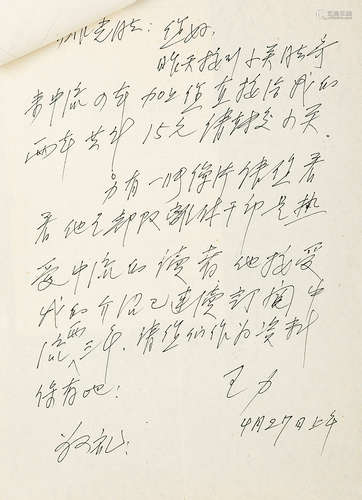 克胜：您好，
昨天接到小关胜寄
来中流四本加上您直接给我的
两本共计15元请转交小关.
另有一听像片请您看
看他是部队离休干部是热
爱中流的读者他接受
我的介绍已连续订阅中
流两三年.请您们作为资料
保存吧！
王力
4月27日上午
敬礼！